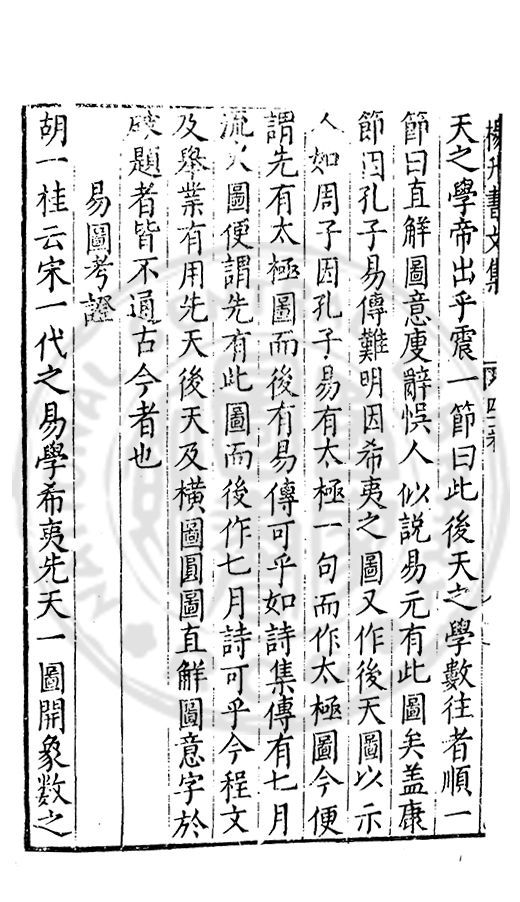 楊升菴文集
天之學帝出乎震一節曰此後天之學數往者順一
節曰直解圖意廋辭悮人似說易元有此圖矣盖康
節因孔子易傳難明因希夷之圖又作後天圖以示
人如周子因孔子易有太極一句而作太極圖今便
謂先有太極圖而後有易傳可乎如詩集傳有七月
流火圖便謂先有此圖而後作七月詩可乎今程文
及舉業有用先天後天及橫圖圓圖直解圖意字於
題者皆不通古今者也
易圖考證
胡一桂云宋一代之易學希夷先天一圖開象数之